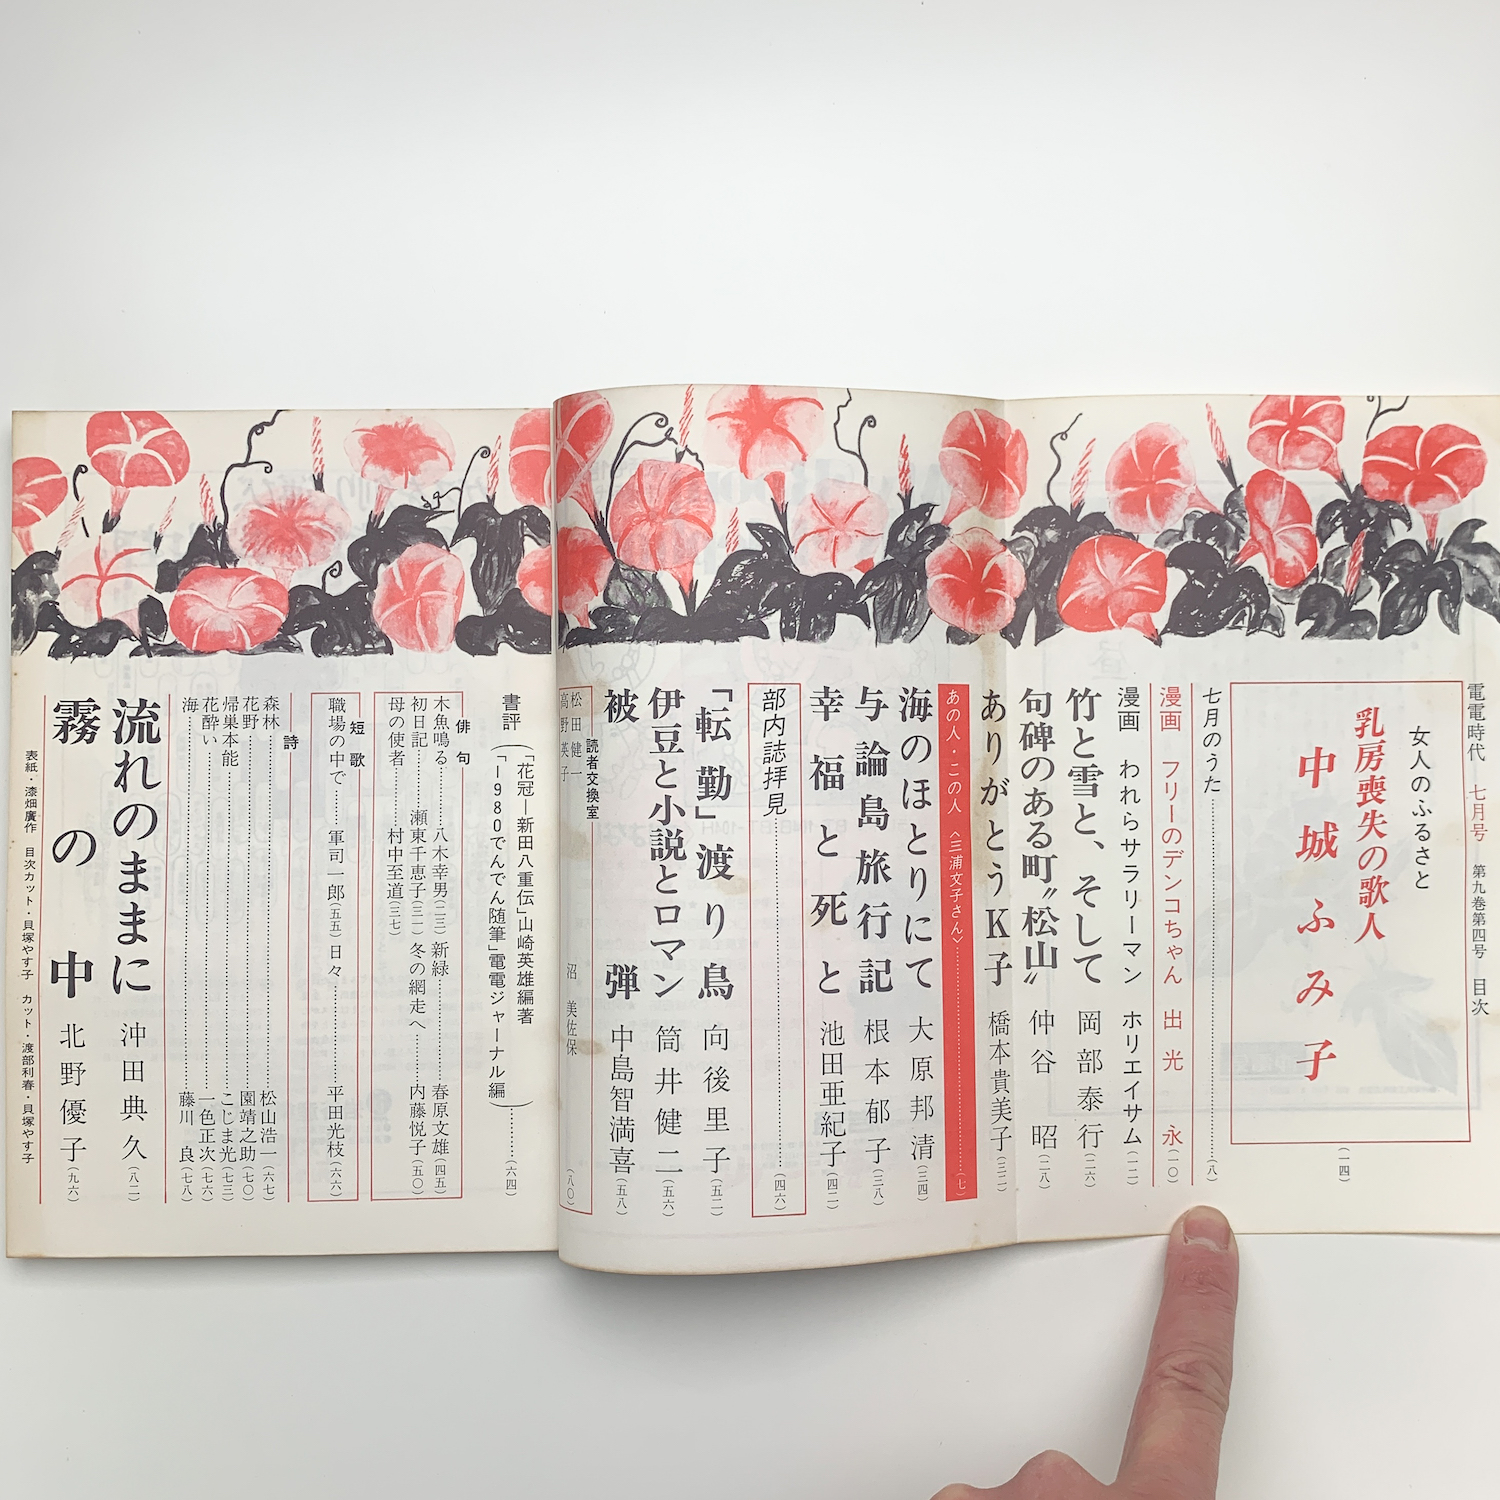 電電時代 七月号 第九巻第四号 目次
女人のふるさと
乳房喪失の歌人
中城ふみ子
(一四)
七月のうた(八)
漫画 フリーのデンコちゃん 出光 永(一〇)
漫画 われらサラリーマン ホリエイサム(一二)
竹と雪と、そして 岡部泰行(二六)
句碑のある町〝松山〟 仲谷 昭(二八)
ありがとうK子 橋本貴美子(三二)
あの人・この人〈三浦文子さん〉(七)
海のほとりにて 大原邦清(三四)
与論島旅行記 根本郁子(三八)
幸福と死と 池田亜紀子(四二)
部内誌拝見(四六)
「転勤」渡り鳥 向後里子(五二)
伊豆と小説とロマン 筒井健二(五六)
被弾 中島智満喜(五八)
読者交換室
松田健一
高野英子 沼 美佐保(八〇)
書評
「花冠―新田八重伝」山崎英雄編著
「1980でんでん随筆」電電ジャーナル編
(六四)
俳句
木魚鳴る 八木幸男(二三) 新緑 春原文雄(四五)
初日記 瀬東千恵子(三一) 冬の網走へ 内藤悦子(五〇)
母の使者 村中至道(三七)
短歌
職場の中で 軍司一郎(五五) 日々 平田光枝(六六)
詩
森林 松山浩一(六七)
花野 園靖之助(七〇)
帰巣本能 こじま光(七三)
花酔い 一色正次(七六)
海 藤川 良(七八)
流れのままに 沖田典久(八二)
霧の中 北野優子(九六)
表紙・漆畑廣作 目次カット・貝塚やす子 カット・渡部利春・貝塚やす子